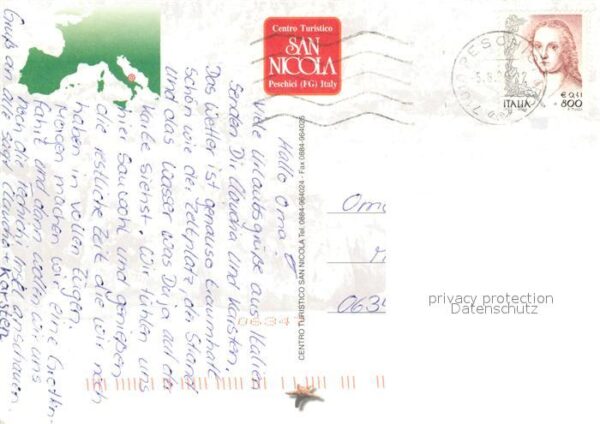 Hallo Oma!
Viele Urlaubsgrüße aus Italien
senden Dir Claudia und Karsten.
Das Wetter ist genauso traumhaft
schön wie der Zeltplatz, der Strand
und das Wasser was Du ja auf der
Karte siehst. Wir fühlen uns
hier Sauwohl und genießen
die restliche Zeit die wir noch
haben in vollen Zügen.
Morgen machen wir eine
fahrt und dann wollen wir uns
noch die anschauen.
Gruß an alle sagt Claudia + Karsten
Centro Turistico
SAN
NICOLA
Peschici (FG) Italy
CENTRO TURISTICO SAN NICOLA Tel. 0884-964024 - Fax 0884-964025
PESCHICI
ITALIA
€ 0,41
800
Oma
0634
0634
privacy protection
Datenschutz